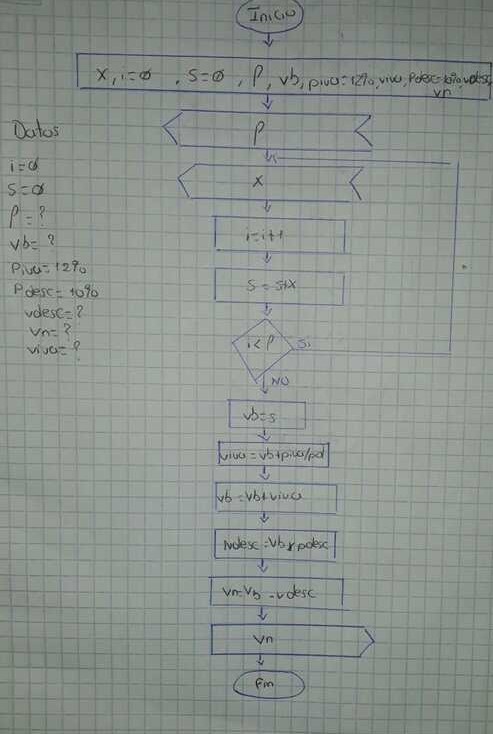 Inicio
x, i=ø, s=ø, P, vb, piva=12%, viva, Pdesc=10%, vdesc,
vn
P
Datos
i=ø
s=ø
P=?
vb=?
Piva=12%
Pdesc=10%
vdesc=?
vn=?
viva=?
x
i=i++
s=s+x
i<P
Si
NO
vb=s
viva=vb*piva/
vb=vb+viva
Vdesc=vb*pdesc
vn=vb-vdesc
vn
Fin